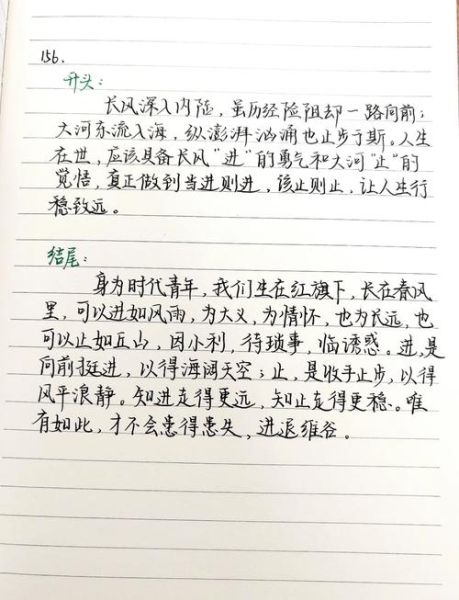 156、
开头：
长风深入内陆，虽历经险阻却一路向前；
大河东流入海，纵澎湃汹涌也止步于斯。人生
在世，应该具备长风“进”的勇气和大河“止”的
觉悟，真正做到当进则进，该止则止，让人生行
稳致远。
结尾：
身为时代青年，我们生在红旗下，长在春风
里，可以进如风雨，为大义，为情怀，也为长远，也
可以止如丘山，因小利，待琐事，临诱惑。进，是
向前挺进，以得海阔天空；止，是收手止步，以得
风平浪静。知进走得更远，知止走得更稳。唯
有如此，才不会患得患失，进退维谷。